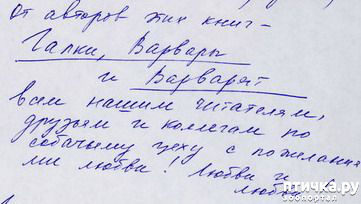 От авторов этих книг –
Галки, Варвары
и Варварят
всем нашим читателям,
друзьям и коллегам по
собачьему цеху с пожелания
ми любви! Любви и
любви
птичка.ру
зообпортал